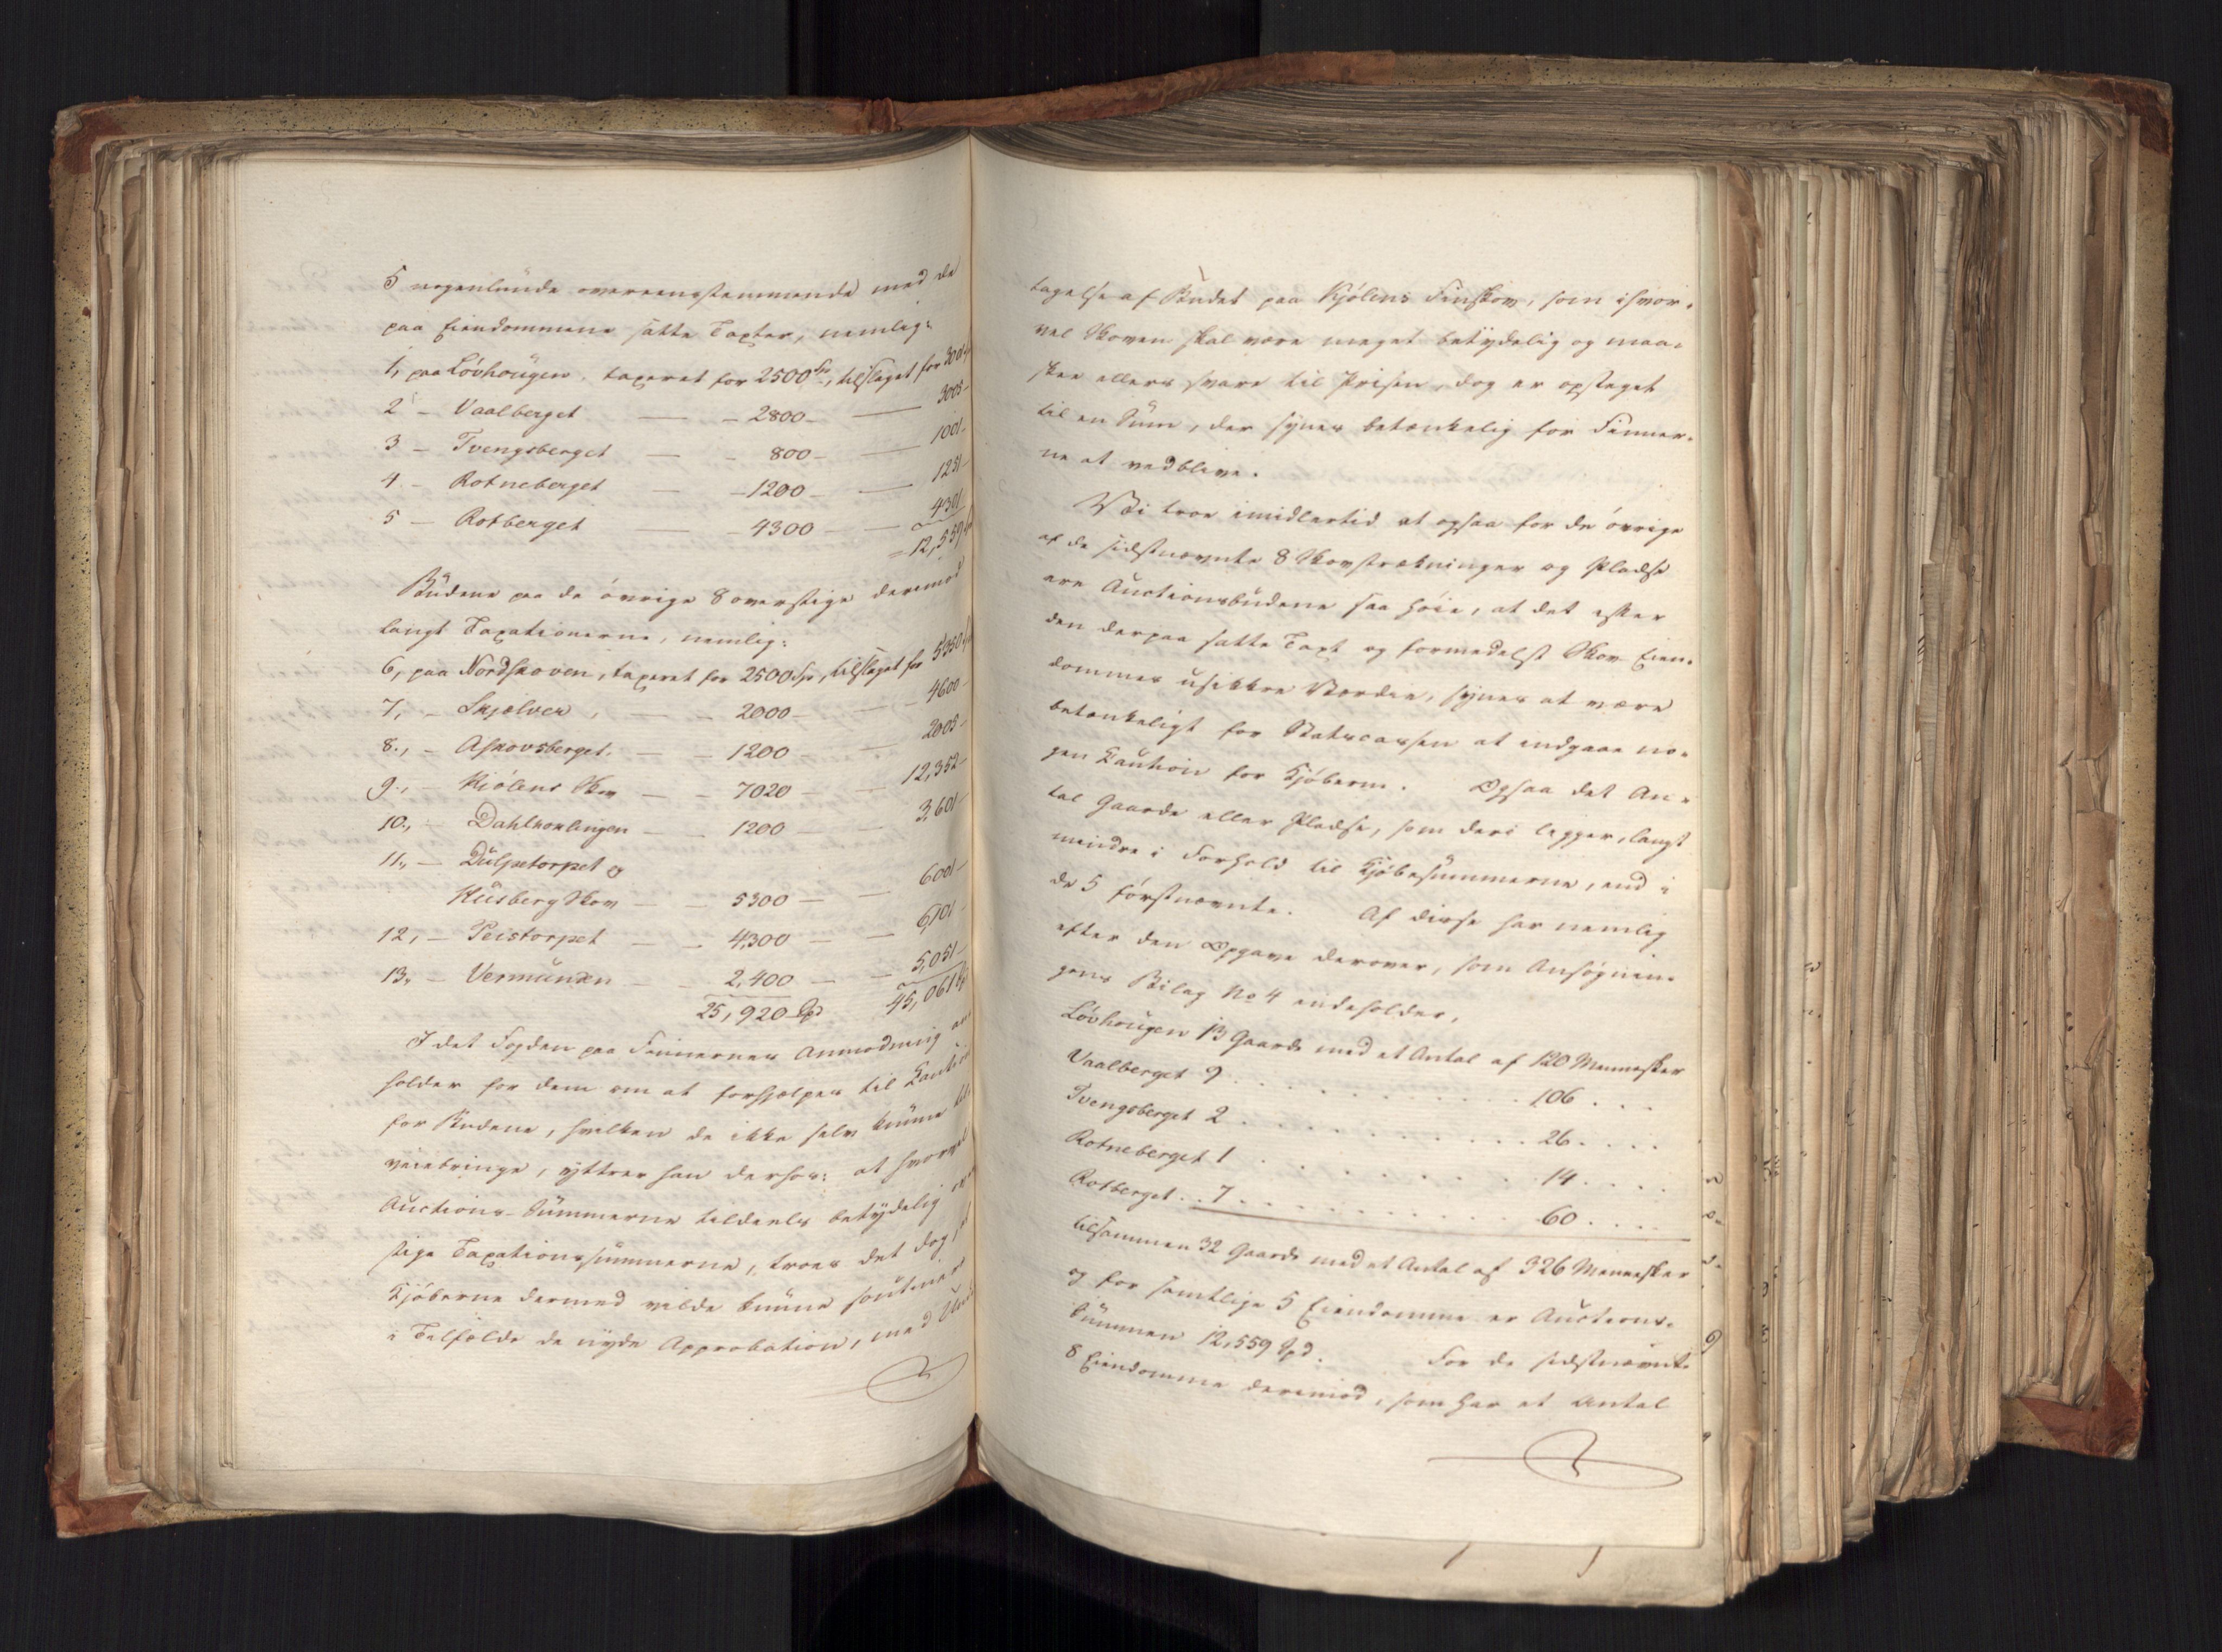 5 nogenlunde overeensstemmende med de
paa Eiendommene satte Taxter, nemlig:
1, paa Lövhougen, taxeret for 2500 Sp, tilslaget for 3001
2 – Vaalberget — – 2800 – — 3005 –
3 – Tvengsberget — – 800 – — 1001 –
4 – Rotneberget — – 1200 – — 1251 –
5 – Rotberget — – 4300 – — 4301
= 12,559
Budene paa de övrige 8 overstige derimod
langt Taxationerne, nemlig:
6, paa Nordskoven, taxeret for 2500 Sp, tilslaget for 5350
7, – Skjælver, — – 2000 – – 4600 –
8., – Askovsberget. — – 1200 — 2005 –
9., – Kiölens Skov — – 7020 – – 12,352 –
10., – Dahlkonlingen — – 1200 – — 3,601 –
11., – Dulpetorpet og
Husberg Skov — – 5300 – — 6001 –
12, – Peistorpet — – 4,300 – — 6,101 –
13, – Vermunden – – 2,400 – — 5,051 –
25,920 Spd 45,061
I det Fogden paa Finnernes Anmodning an
holder for dem om at forhjælpes til Caution
for Budene, hvilken de ikke selv kunne til
veiebringe, yttrer han derhos: at hvorvel
Auctions-Summerne tildeels betydelig over
stige Taxationssummerne, troes det dog, at
Kjöberne dermed vilde kunne soutinere
i Tilfælde de nyde Approbation, med Und
tagelse af Budet paa Kjölens Finskov, som ihvor-
vel Skoven skal være meget betydelig og maa-
skee ellers svare til Prisen, dog er opstaget
til en Sum, der synes betænkelig for Finner-
ne at vedblive.
Vi troe imidlertid at ogsaa for de övrige
af de sidstnævnte 8 Skovstrækninger og Pladse
ere Auctionsbudene saa höie, at det efter
den derpaa satte Taxt og formedelst Skov-Eien-
dommes usikkre Værdie, synes at være
betænkeligt for Statscassen at indgaae no-
gen Caution for Kjöberne. Ogsaa det An-
tal Gaarde eller Pladse, som deri ligger, langt
mindre i Forhold til Kjöbesummerne, end i
de 5 förstnævnte. Af disse har nemlig
efter den Opgave derover, som Ansögnin-
gens Bilag No 4 indeholder,
Lövhougen 13 Gaarde med et Antal af 120 Mennesker
Vaalberget 9 . . . . . . . . . . 106 . . .
Tvengsberget 2 . . . . . . . . . . 26 . . . .
Rotneberget 1 . . . . . . . . . . 14 . . . .
Rotberget . . 7 . . . . . . . . . . 60 . . . .
tilsammen 32 Gaarde med et Antal af 326 Mennesker
og for samtlige 5 Eiendomme er Auctions-
Summen 12,559 Spd. For de sidstnævnte
8 Eiendomme derimod, som har et Antal